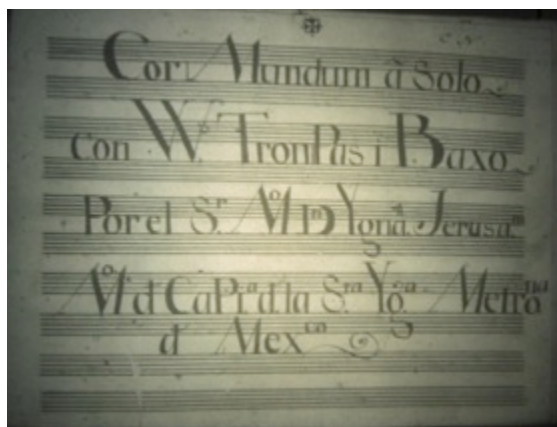 Cor Mundum â Solo
Con VVs. Trompas i Baxo
Por el Sr. Mo. Dn. Ygna. Jerusam.
Mo. d Capia. d. la Sra. Yga. Metrona
d Mexco